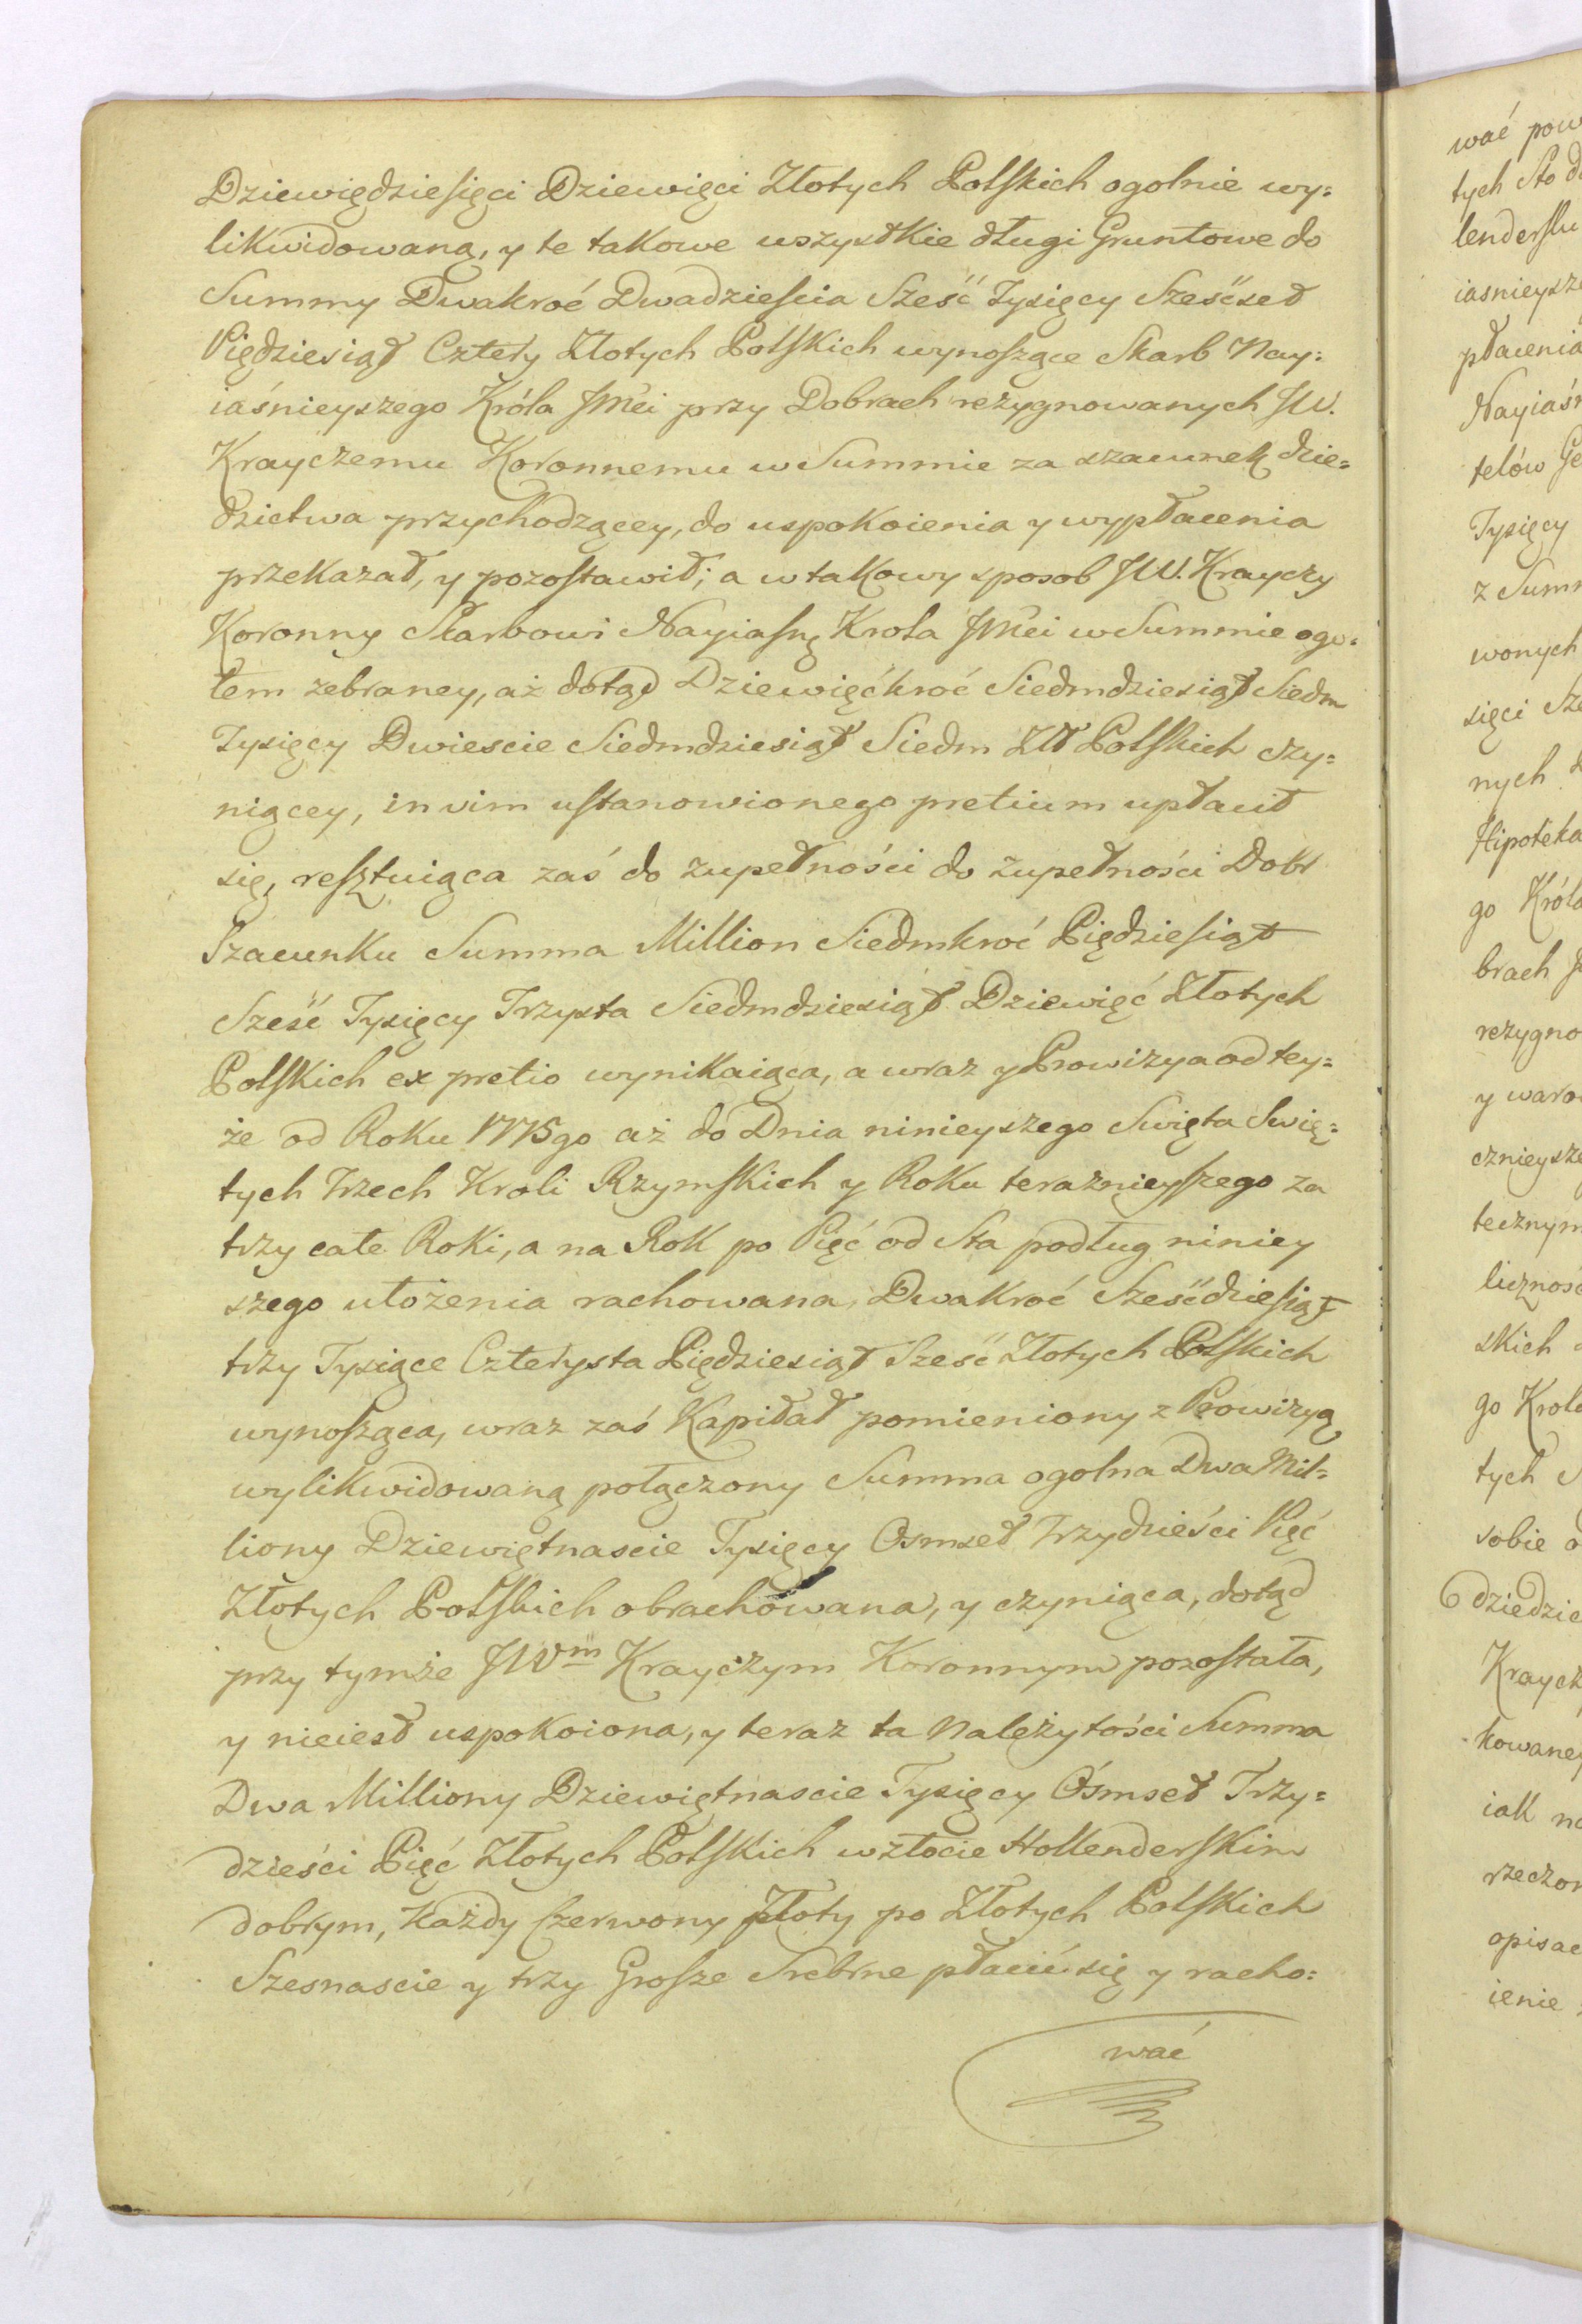 Dziewiędziesięci Dziewięci Złotych Polskich ogolnie wy=
likwidowaną, y te takowe wszystkie długi Gruntowe do
Summy Dwakroć Dwadziescia Sześć Tysięcy Sześćset
Piędziesiąt Cztery Złotych Polskich wynoszące Skarb Nay=
iaśnieyszego Króla JMci przy Dobrach rezygnowanych JW.
Krayczemu Koronnemu w Summie za szacunek dzie=
dzictwa przychodzącey, do uspokoienia y wypłacenia
przekazał, y pozostawił; a w takowy sposob JW. Krayczy
Koronny Skarbowi Nayiasnę Krola JMci w Summie ogo=
łem zebraney, aż dotąd Dziewięćkroć Siedmdziesiąt Siedm
Tysięcy Dwiescie Siedmdziesiąt Siedm Złt Polskich czy=
niącey, in vim ustanowionego pretium upłacił
się, resztuiąca zaś do zupełności do zupełności Dobr
Szacunku Summa Million Siedmkroć Piędziesiąt
Sześć Tysięcy Trzysta Siedmdziesiąt Dziewięć Złotych
Polskich ex pretio wynikaiąca, a wraz y Prowizya od tey=
że od Roku 1775go aż do Dnia ninieyszego Swięta Swię=
tych Trzech Kroli Rzymskich y Roku teraznieyszego za
trzy całe Roki, a na Rok po Pięć od Sta podług niniey
szego ułożenia rachowana, Dwakroć Sześćdziesiąt
trzy Tysiące Czterysta Piędziesiąt Sześć Złotych Polskich
wynosząca, wraz zaś Kapitał pomieniony z Prowizyą
wylikwidowaną połączony Summa ogolna Dwa Mil=
liony Dziewiętnascie Tysięcy Osmset Trzydzieści Pięć
Złotych Polskich obrachowana, y czyniąca, dotąd
przy tymże JWm Krayczym Koronnym pozostała,
y nieiest uspokoiona, y teraz ta Należytości Summa
Dwa Milliony Dziewiętnascie Tysięcy Ośmset Trzy=
dzieści Pięć Złotych Polskich w złocie Hollenderskim
dobrym, każdy Czerwony Złoty po Złotych Polskich
Szesnascie y trzy Grosze Srebrne płacić się y racho=
wać
wać pow
tych Sto
lenders
iasnieysze
płacenia
Nayiaśn
telów
Tysięcy
z Summ
wonych
sięci
nych
Hipoteka
go Króla
brach
rezygno
y waro
cznieysze
tecznym
liczność
skich
go Krola
tych
sobie
dziedzic
Kraycz
kowaney
iak na
rzeczon
opisac
ienie